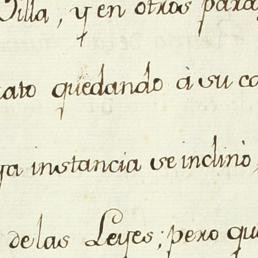 Villa, y en otros para
ato quedando á su ca
ya instancia se inclinò,
de las Leyes; pero qu